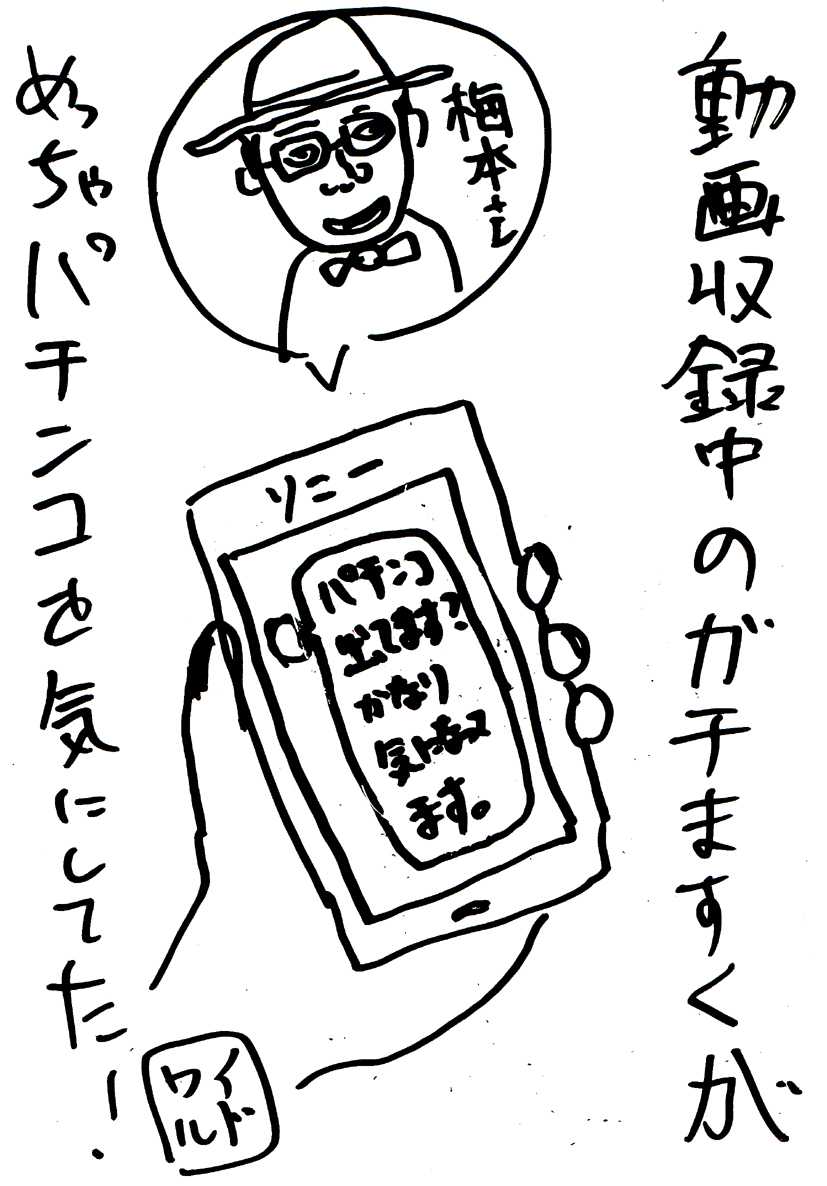 動画収録中のガチますくが
梅本さん
ソニー
パチンコ
出てます?
かなり
気になって
ます。
めっちゃパチンコを気にしてた!
ワイ
ルド